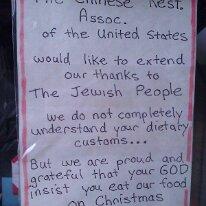 The Chinese Rest.
Assoc.
of the United States
would like to extend
our thanks to
The Jewish People
we do not completely
understand your dietary
customs...
But we are proud and
grateful that your GOD
insist you eat our food
on Christmas